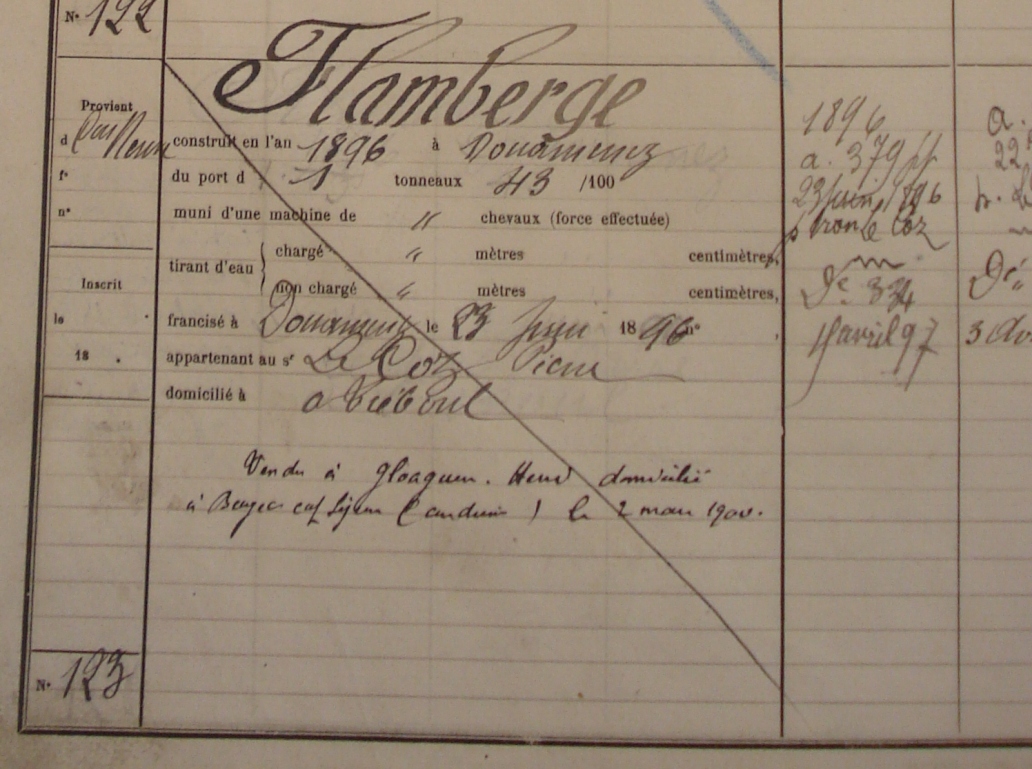 N° 122
Flamberge
Provient
d construit en l'an 1896 à Douarnenez
f° du port d 1 tonneaux 43 /100
n° muni d'une machine de " chevaux (force effectuée)
tirant d'eau
chargé " mètres centimètres,
non chargé " mètres centimètres,
Inscrit
le francisé à Douarnenez le 23 Juin 1896 n°
18 . appartenant au sr Le Coz Pierre
domicilié à Tréboul
Vendu à Gloaguen Henri domicilié
à Beuzec cap Sizun (Audierne) le 2 mars 1900.
N° 123
1896
a. 379
23 juin 1896
Le Coz
De 334
avril 97
a.
22
De
3